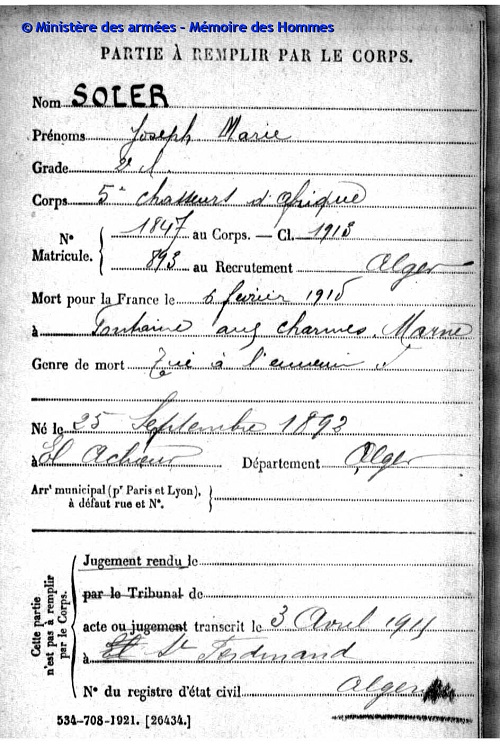 © Ministère des armées - Mémoire des Hommes
PARTIE À REMPLIR PAR LE CORPS.
Nom SOLER
Prénoms Joseph Marie
Grade 2e
Corps 5e chasseurs d'afrique
N° Matricule. { 1847 au Corps. — Cl. 1913
893 au Recrutement Alger
Mort pour la France le 6 février 1915
à Fontaine aux charmes, Marne
Genre de mort Tué à l'ennemi
Né le 25 Septembre 1892
à El Achour Département Alger
Arrt municipal (pr Paris et Lyon), à défaut rue et N°. }
Cette partie n'est pas à remplir par le Corps. {
Jugement rendu le
par le Tribunal de
acte ou jugement transcrit le 3 Avril 1915
à St Ferdinand
N° du registre d'état civil Alger
534-708-1921. [26434.]